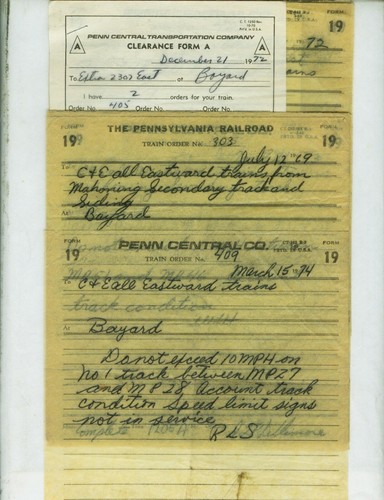 PENN CENTRAL TRANSPORTATION COMPANY
CLEARANCE FORM A
December 21 1972
To Extra 2302 East at Bayard
I have 2 orders for your train.
Order No. 405 Order No. Order No.
72
FORM 19
THE PENNSYLVANIA RAILROAD
FORM 19
TRAIN ORDER No. 303
July 12 '69
To C&E all Eastward trains from
Mahoning Secondary track and
Siding
At Bayard
FORM 19
PENN CENTRAL CO.
FORM 19
TRAIN ORDER No. 409
March 15 1974
To C&E all Eastward trains
track condition
At Bayard
Do not exceed 10 MPH on
No 1 track between MP27
and MP 28 Account track
condition Speed limit signs
not in service
RLS
complete